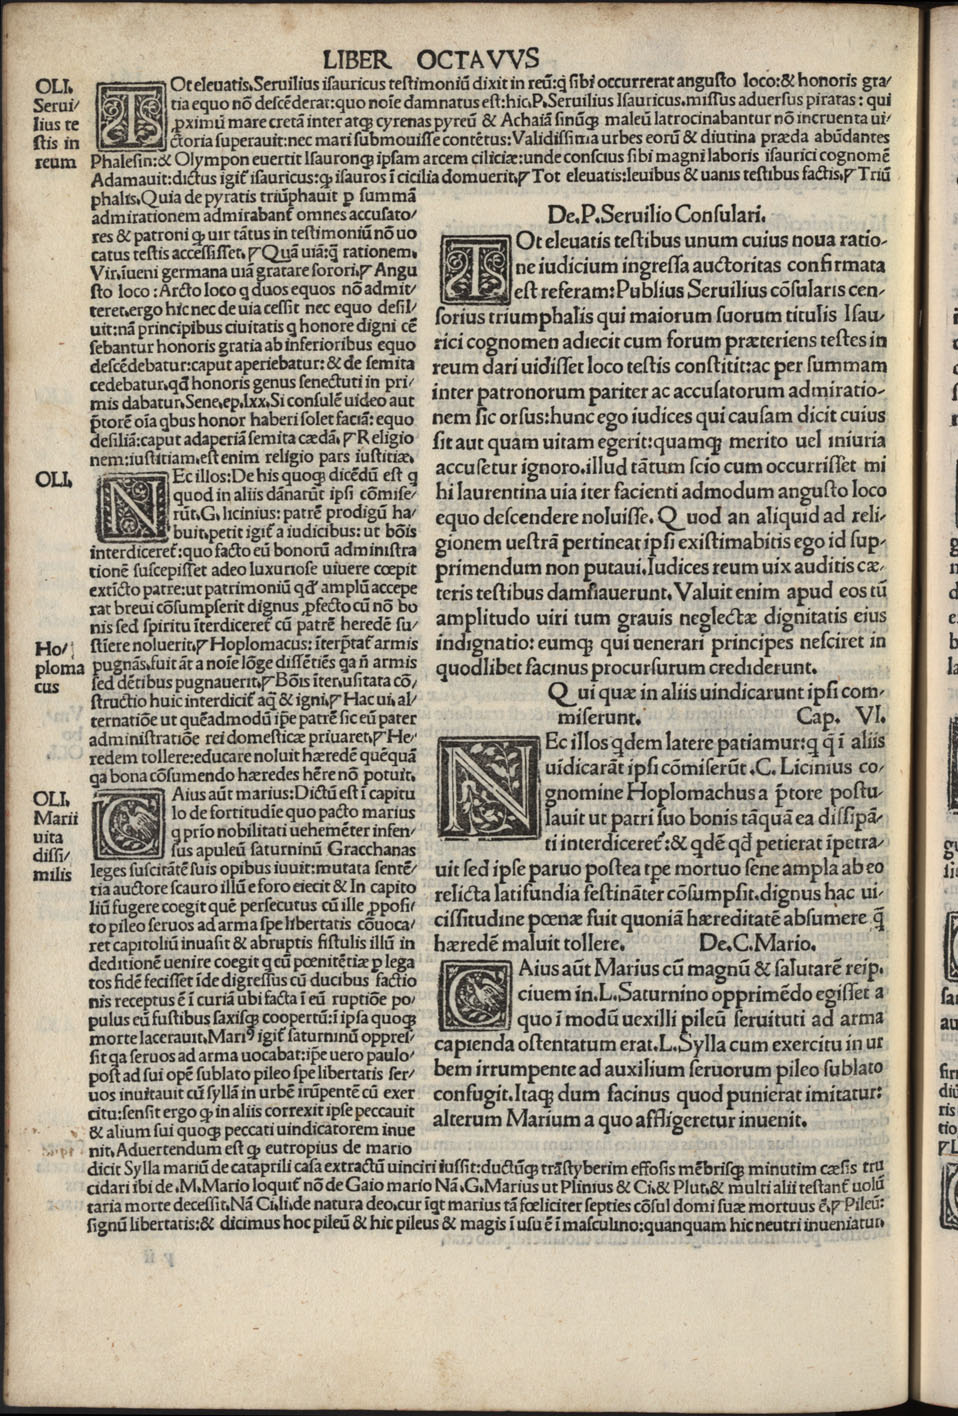 LIBER OCTAVVS
OLI.
Serui/
lius te
stis in
reum
TOt eleuatis.Seruilius isauricus testimoniū dixit in reū:ꝙ sibi occurrerat angusto loco:& honoris gra/
tia equo nō descēderat:quo noīe damnatus est:hic.P.Seruilius Isauricus.missus aduersus piratas: qui
ꝓximū mare cretā inter atqꝫ cyrenas pyreū & Achaiā sinūqꝫ maleū latrocinabantur nō incruenta ui/
ctoria superauit:nec mari submouisse contētus:Validissima urbes eorū & diutina præda abūdantes
Phaselin:& Olympon euertit Isauronqꝫ ipsam arcem ciliciæ:unde conscius sibi magni laboris isaurici cognomē
Adamauit:dictus igit̄ isauricus:ꝙ isauros ī cicilia domuerit.¶Tot eleuatis:leuibus & uanis testibus factis.¶Triū
phalis.Quia de pyratis triūphauit ꝑ summā
admirationem admirabant̄ omnes accusato/
res & patroni ꝙ uir tātus in testimoniū nō uo
catus testis accessisset.¶Quā uiā:q̄ rationem.
Vir.īueni germana uiā gratare sorori.¶Angu
sto loco:Arcto loco q duos equos nō admit/
teret.ergo hic nec de uia cessit nec equo desil/
uit:nā principibus ciuitatis q honore digni cē
sebantur honoris gratia ab inferioribus equo
descēdebatur:caput aperiebatur:& de semita
cedebatur.qd̄ honoris genus senectuti in pri/
mis dabatur.Sene.ep.lxx.Si consulē uideo aut
p̄torē oīa qbus honor haberi solet faciā:equo
desiliā:caput adaperiā semita cædā.¶Religio
nem:iustitiam.est enim religio pars iustitiæ.
OLI.
NEc illos:De his quoqꝫ dicēdū est q
quod in aliis dānarūt ipsi cōmise/
rūt.G.licinius:patrē prodigū ha/
buit.petit igit̄ a iudicibus: ut bōis
interdiceret̄:quo facto eū bonorū administra
tionē suscepisset adeo luxuriose uiuere cœpit
extīcto patre:ut patrimoniū qd̄ amplū accepe
rat breui cōsumpserit dignus ꝓfecto cū nō bo
nis sed spiritu īterdiceret̄ cū patrē heredē su/
stinere noluerit.¶Hoplomacus:īterp̄tat̄ armis
Ho/
ploma
cus
pugnās.fuit āt a noīe lōge dissētiēs qa n̄ armis
sed dētibus pugnauerit.¶Bōis īter.usitata cō/
structio huic interdicit̄ aq̄ & igni.¶Hac ui.al/
ternatiōe ut quēadmodū ip̄e patrē sic eū pater
administratiōe rei domesticæ priuaret.¶He/
redem tollere:educare noluit hæredē quēquā
qa bona cōsumendo hæredes hēre nō potuit.
OLI.
Marii
uita
dissi/
milis
CAius aūt marius:Dictū est ī capitu
lo de fortitudīe quo pacto marius
q prīo nobilitati uehemēter infen/
sus apuleū saturninū Gracchanas
leges suscitātē suis opibus iuuit:mutata sentē/
tia auctore scauro illū e foro eiecit & In capito
liū fugere coegit quē persecutus cū ille ꝓposi/
to pileo seruos ad arma spe libertatis cōuoca/
ret capitoliū inuasit & abruptis fistulis illū in
deditionē uenire coegit q cū pœnitētiæ ꝑ lega
tos fidē fecisset īde digressus cū ducibus factio
nis receptus ē ī curiā ubi facta ī eū ruptiōe po/
pulus eū fustibus saxisqꝫ coopertū:ī ipsa quoqꝫ
morte lacerauit.Mariꝰ igit̄ saturninū oppres/
sit qa seruos ad arma uocabat:ip̄e uero paulo/
post ad sui opē sublato pileo spe libertatis ser/
uos inuitauit cū syllā in urbē irūpentē cū exer
citu:sensit ergo ꝙ in aliis correxit ipse peccauit
& alium sui quoqꝫ peccati uindicatorem inue
nit.Aduertendum est ꝙ eutropius de mario
De.P.Seruilio Consulari.
TOt eleuatis testibus unum cuius noua ratio-
ne iudicium ingressa auctoritas confirmata
est referam:Publius Seruilius cōsularis cen-
sorius triumphalis qui maiorum suorum titulis Isau-
rici cognomen adiecit cum forum præteriens testes in
reum dari uidisset loco testis constitit:ac per summam
inter patronorum pariter ac accusatorum admiratio-
nem sic orsus:hunc ego iudices qui causam dicit cuius
sit aut quam uitam egerit:quamqꝫ merito uel iniuria
accusetur ignoro.illud tātum scio cum occurrisset mi
hi laurentina uia iter facienti admodum angusto loco
equo descendere noluisse.Quod an aliquid ad reli-
gionem uestrā pertineat ipsi existimabitis ego id sup-
primendum non putaui.Iudices reum uix auditis cæ-
teris testibus damnauerunt.Valuit enim apud eos tū
amplitudo uiri tum grauis neglectæ dignitatis eius
indignatio: eumqꝫ qui uenerari principes nesciret in
quodlibet facinus procursurum crediderunt.
Qui quæ in aliis uindicarunt ipsi com-
miserunt. Cap. VI.
NEc illos qdem latere patiamur:q q̄ ī aliis
uidicarāt ipsi cōmiserūt.C.Licinius co-
gnomine Hoplomachus a p̄tore postu-
lauit ut patri suo bonis tāquā ea dissipā-
ti interdiceret̄:& qdē qd̄ petierat īpetra-
uit sed ipse paruo postea tpe mortuo sene ampla ab eo
relicta latifundia festināter cōsumpsit.dignus hac ui-
cissitudine pœnæ fuit quoniā hæreditatē absumere q̄
hæredē maluit tollere. De.C.Mario.
CAius aūt Marius cū magnū & salutarē reip.
ciuem in.L.Saturnino opprimēdo egisset a
quo ī modū uexilli pileū seruituti ad arma
capienda ostentatum erat.L.Sylla cum exercitu in ur
bem irrumpente ad auxilium seruorum pileo sublato
confugit.Itaqꝫ dum facinus quod punierat imitatur:
alterum Marium a quo affligeretur inuenit.
dicit Sylla mariū de cataprili casa extractū uinciri iussit:ductūqꝫ trāstyberim effosis mēbrisqꝫ minutim cæsis tru
cidari ibi de.M.Mario loquit̄ nō de Gaio mario Nā.G.Marius ut Plinius & Ci.& Plut.& multi alii testant̄ uolū
taria morte decessit.Nā Ci.li.de natura deo.cur īqt marius tā fœliciter septies cōsul domi suæ mortuus ē.¶Pileū:
signū libertatis:& dicimus hoc pileū & hic pileus & magis ī usu ē ī masculino:quanquam hic neutri inueniatur.